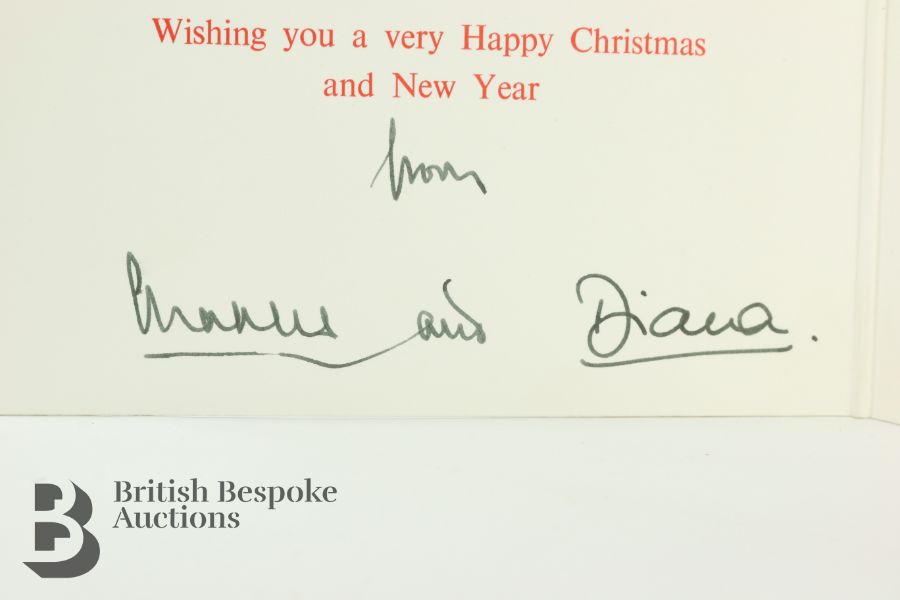 Wishing you a very Happy Christmas
and New Year
from
Charles and Diana.
British Bespoke
Auctions